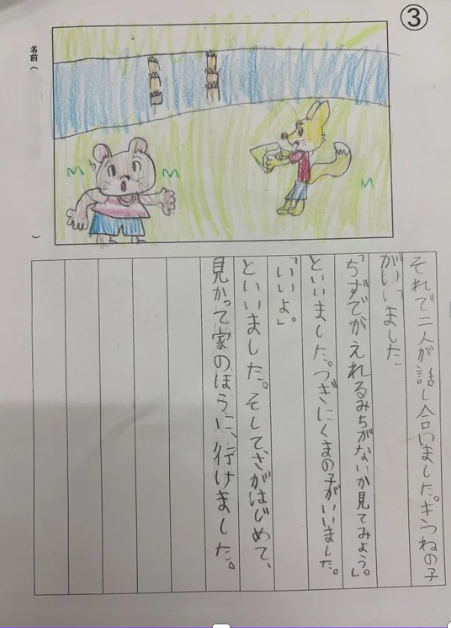 ③
名前（　　）
それで二人が話し合いました。きつねの子
がいいました
「ちずでがえれるみちがないか見てみよう。」
といいました。つぎにくまの子がいいました。
「いいよ。」
といいました。そして、さがはじめて、
見かって家のほうに、行けました。